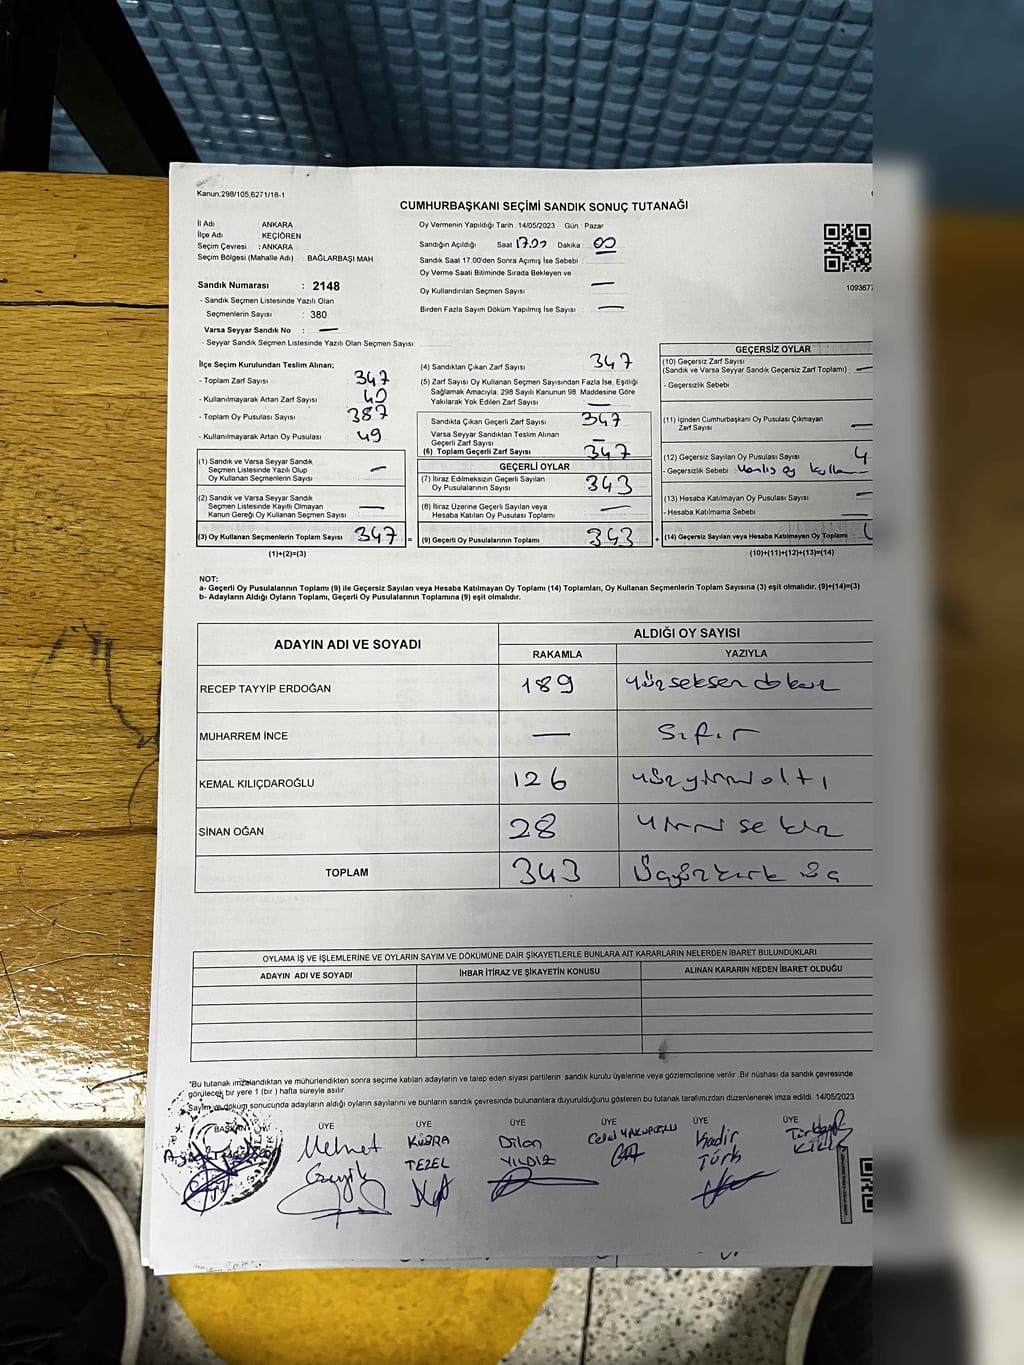 Kanun:298/105,6271/18-1
CUMHURBAŞKANI SEÇİMİ SANDIK SONUÇ TUTANAĞI
İl Adı ANKARA
İlçe Adı KEÇİÖREN
Seçim Çevresi : ANKARA
Seçim Bölgesi (Mahalle Adı) : BAĞLARBAŞI MAH
Sandık Numarası : 2148
- Sandık Seçmen Listesinde Yazılı Olan
Seçmenlerin Sayısı : 380
Varsa Seyyar Sandık No : —
- Seyyar Sandık Seçmen Listesinde Yazılı Olan Seçmen Sayısı:
Oy Vermenin Yapıldığı Tarih : 14/05/2023 Gün : Pazar
Sandığın Açıldığı Saat 17.00 Dakika : 00
Sandık Saat 17.00'den Sonra Açımış İse Sebebi :
Oy Verme Saati Bitiminde Sırada Bekleyen ve
Oy Kullandırılan Seçmen Sayısı —
Birden Fazla Sayım Döküm Yapılmış İse Sayısı : —
1093677
İlçe Seçim Kurulundan Teslim Alınan;
- Toplam Zarf Sayısı 347
- Kullanılmayarak Artan Zarf Sayısı : 40
- Toplam Oy Pusulası Sayısı : 387
- Kullanılmayarak Artan Oy Pusulası : 49
(1) Sandık ve Varsa Seyyar Sandık
Seçmen Listesinde Yazılı Olup
Oy Kullanan Seçmenlerin Sayısı : —
(2) Sandık ve Varsa Seyyar Sandık
Seçmen Listesinde Kayıtlı Olmayan
Kanun Gereği Oy Kullanan Seçmen Sayısı : —
(3) Oy Kullanan Seçmenlerin Toplam Sayısı : 347 =
(1)+(2)=(3)
(4) Sandıktan Çıkan Zarf Sayısı : 347
(5) Zarf Sayısı Oy Kullanan Seçmen Sayısından Fazla İse, Eşitliği
Sağlamak Amacıyla; 298 Sayılı Kanunun 98. Maddesine Göre
Yakılarak Yok Edilen Zarf Sayısı : —
Sandıkta Çıkan Geçerli Zarf Sayısı : 347
Varsa Seyyar Sandıktan Teslim Alınan
Geçerli Zarf Sayısı : —
(6) Toplam Geçerli Zarf Sayısı : 347
GEÇERLİ OYLAR
(7) İtiraz Edilmeksizin Geçerli Sayılan
Oy Pusulalarının Sayısı : 343
(8) İtiraz Üzerine Geçerli Sayılan veya
Hesaba Katılan Oy Pusulası Toplamı : —
(9) Geçerli Oy Pusulalarının Toplamı : 343 +
GEÇERSİZ OYLAR
(10) Geçersiz Zarf Sayısı
(Sandık ve Varsa Seyyar Sandık Geçersiz Zarf Toplamı) : —
- Geçersizlik Sebebi :
(11) İçinden Cumhurbaşkanı Oy Pusulası Çıkmayan
Zarf Sayısı : —
(12) Geçersiz Sayılan Oy Pusulası Sayısı : 4
- Geçersizlik Sebebi : Yanlış oy
(13) Hesaba Katılmayan Oy Pusulası Sayısı : —
- Hesaba Katılmama Sebebi : —
(14) Geçersiz Sayılan veya Hesaba Katılmayan Oy Toplamı :
(10)+(11)+(12)+(13)=(14)
NOT:
a- Geçerli Oy Pusulalarının Toplamı (9) ile Geçersiz Sayılan veya Hesaba Katılmayan Oy Toplamı (14) Toplamları, Oy Kullanan Seçmenlerin Toplam Sayısına (3) eşit olmalıdır. (9)+(14)=(3)
b- Adayların Aldığı Oyların Toplamı, Geçerli Oy Pusulalarının Toplamına (9) eşit olmalıdır.
ADAYIN ADI VE SOYADI ALDIĞI OY SAYISI
RAKAMLA YAZIYLA
RECEP TAYYİP ERDOĞAN 189 Yüzseksen dokuz
MUHARREM İNCE — Sıfır
KEMAL KILIÇDAROĞLU 126 Yüzyirmi altı
SİNAN OĞAN 28 Yirmi sekiz
TOPLAM 343 Üçyüzkırk üç
OYLAMA İŞ VE İŞLEMLERİNE VE OYLARIN SAYIM VE DÖKÜMÜNE DAİR ŞİKAYETLERLE BUNLARA AİT KARARLARIN NELERDEN İBARET BULUNDUKLARI
ADAYIN ADI VE SOYADI İHBAR İTİRAZ VE ŞİKAYETİN KONUSU ALINAN KARARIN NEDEN İBARET OLDUĞU
*Bu tutanak imzalandıktan ve mühürlendikten sonra seçime katılan adayların ve talep eden siyasi partilerin sandık kurulu üyelerine veya gözlemcilerine verilir .Bir nüshası da sandık çevresinde
görülecek bir yere 1 (bir ) hafta süreyle asılır.
Sayım ve döküm sonucunda adayların aldığı oyların sayılarını ve bunların sandık çevresinde bulunanlara duyurulduğunu gösteren bu tutanak tarafımızdan düzenlenerek imza edildi. 14/05/2023
BAŞKAN ÜYE ÜYE ÜYE ÜYE ÜYE ÜYE
Mehmet KÜBRA Dilan Celal YAKUPOĞLU Kadir
TEZEL YILDIZ Türk